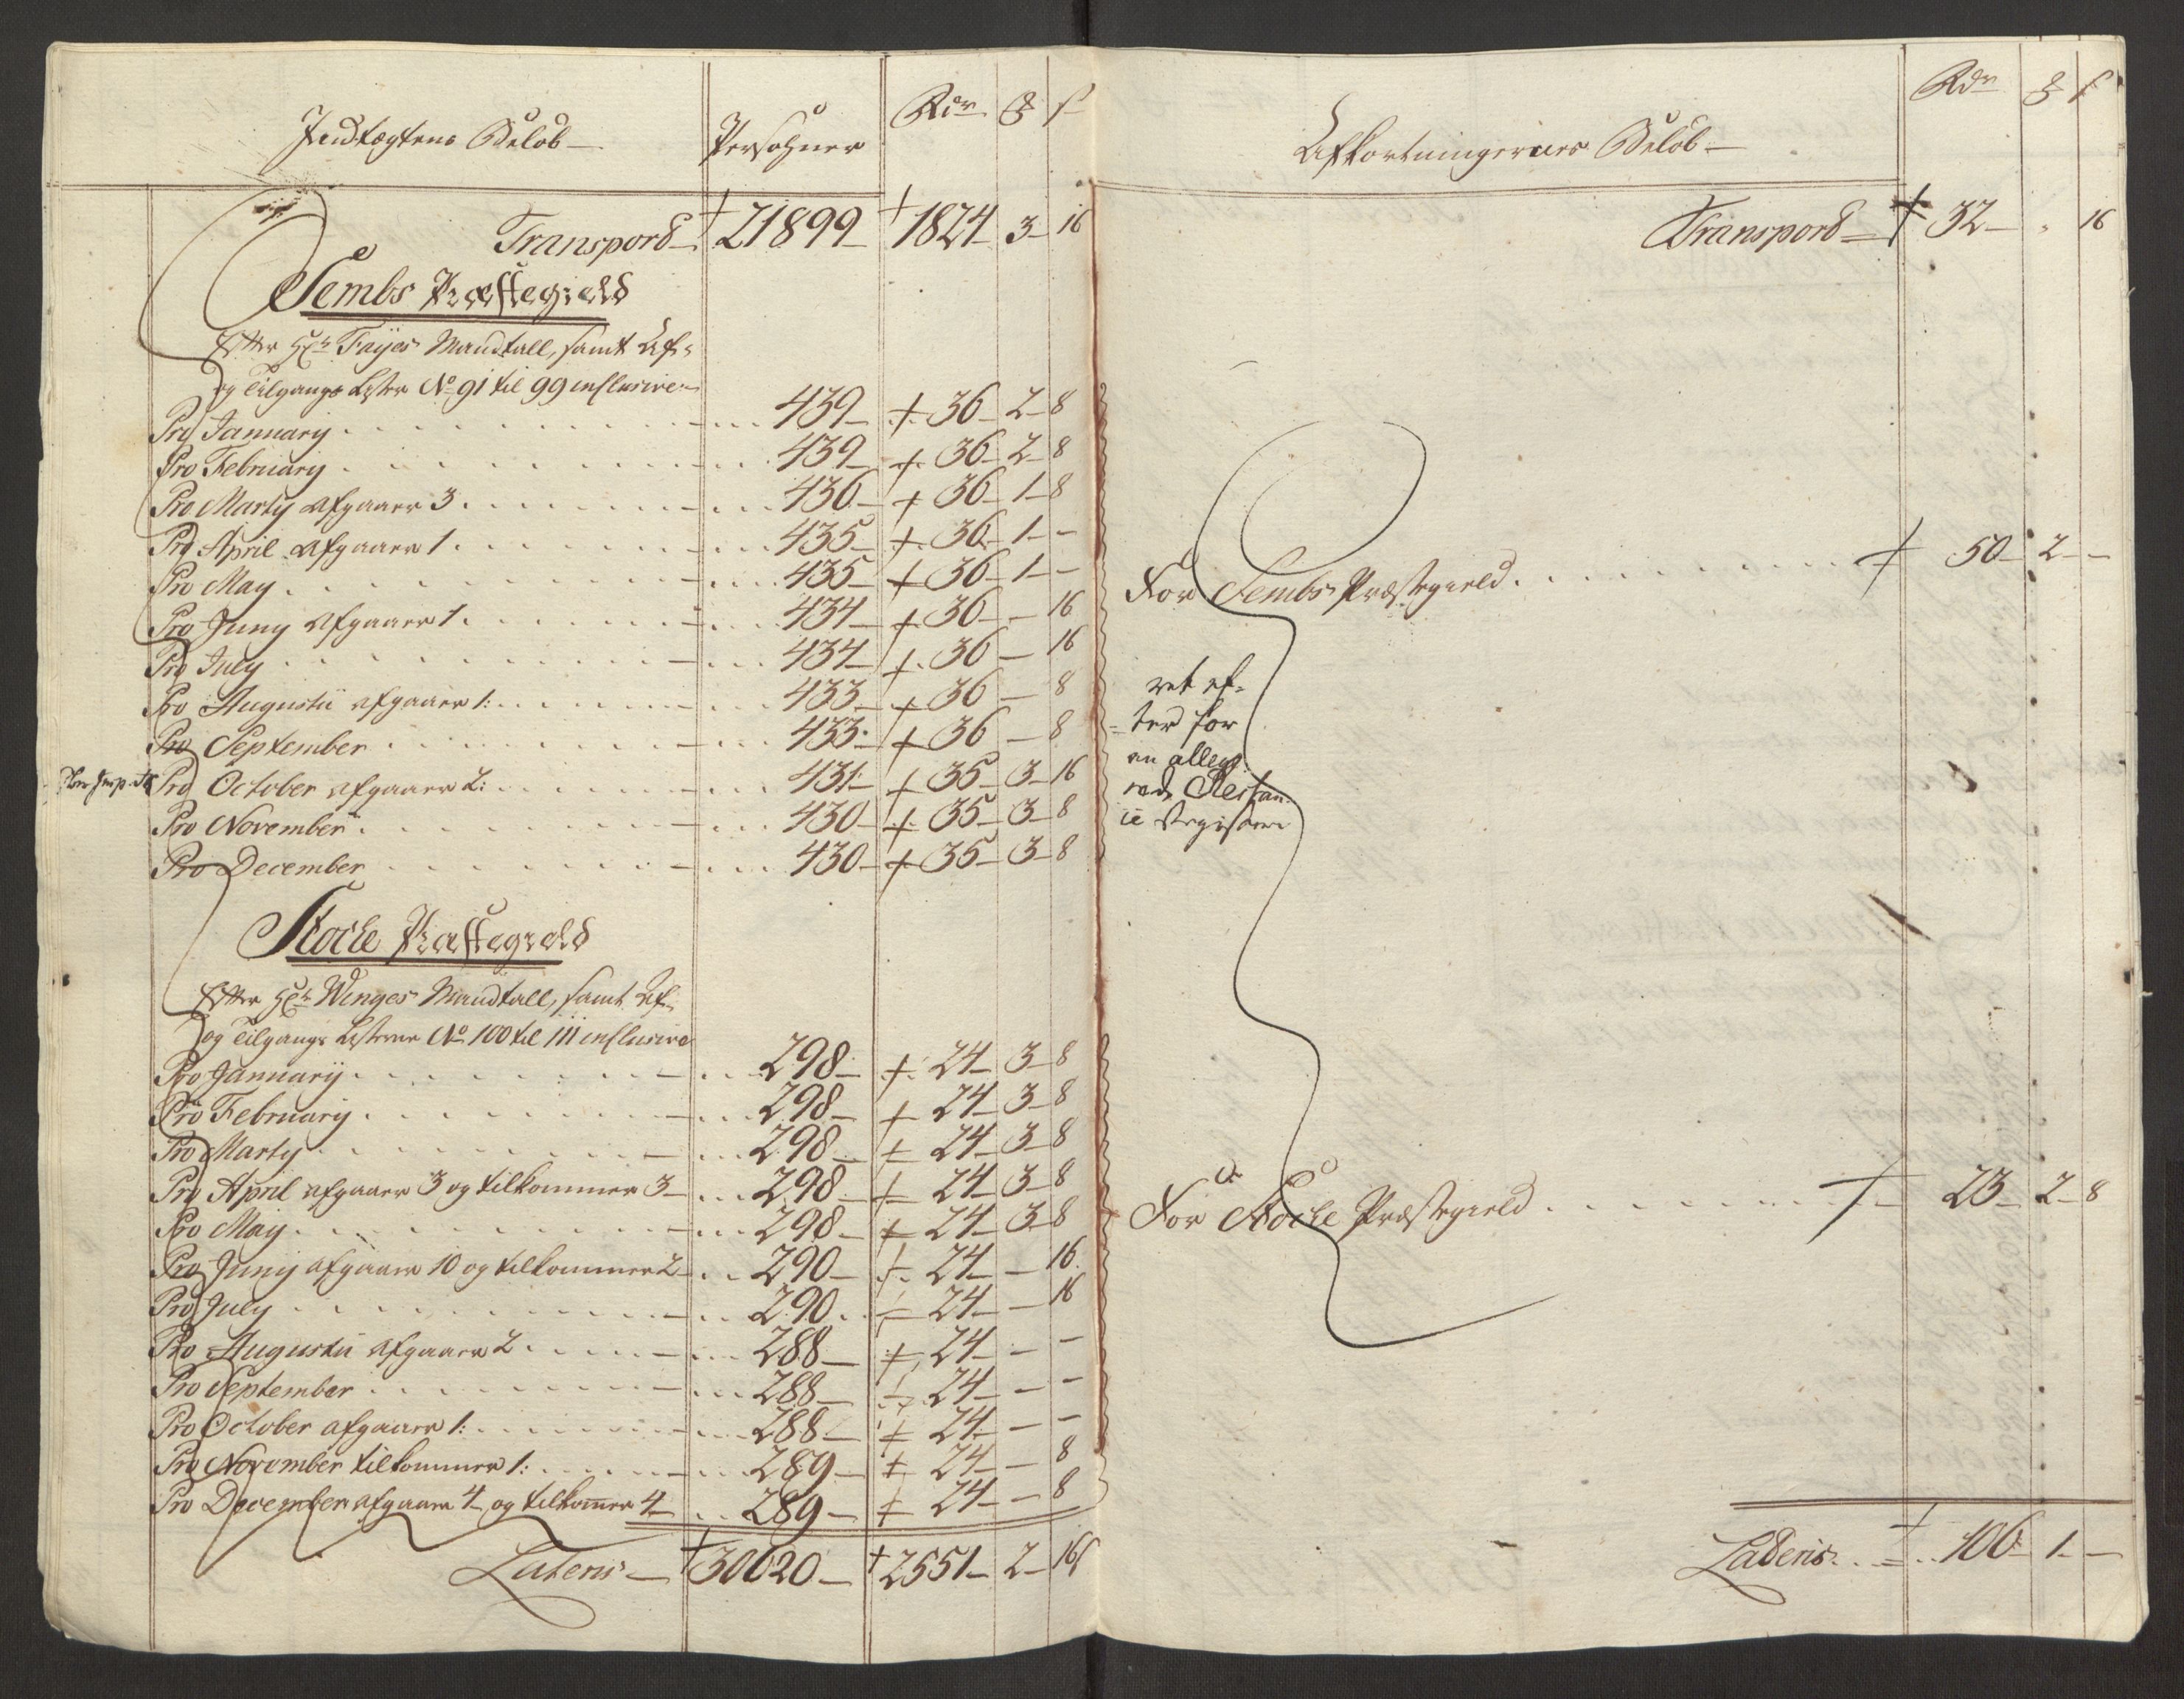 Indtægtens Beløb Persohner Rdr ß
Transpord 21899 1824 3 16
Sembs Præstegield
Efter Hr. Fayes Mandtall, samt Af-
og Tilgangs Lister No 91 til 99 inclusive
Pro January 439 36 2 8
Pro February 439 36 2 8
Pro Marty afgaaer 3 436 36 1 8
Pro April afgaaer 1 435 36 1 -
Pro May 435 36 1 -
Pro Juny afgaaer 1 434 36 - 16
Pro July 434 36 - 16
Pro Augustii afgaaer 1: 433 36 - 8
Pro September 433 36 - 8
Pro October afgaaer 2: 431 35 3 16
Pro November 430 35 3 8
Pro December 430 35 3 8
Stocke Præstegield
Efter Hr. Winges Mandtall, samt Af-
og Tilgangs Listerne No 100 til 111 inclusive
Pro January 298 24 3 8
Pro February 298 24 3 8
Pro Marty 298 24 3 8
Pro April afgaaer 3 og tilkommer 3 298 24 3 8
Pro May 298 24 3 8
Pro Juny afgaaer 10 og tilkommer 2 290 24 - 16
Pro July 290 24 - 16
Pro Augustii afgaaer 2 288 24 - -
Pro September 288 24 - -
Pro October afgaaer 1: 288 24 - -
Pro November tilkommer 1: 289 24 - 8
Pro December afgaaer 4 og tilkommer 4 289 24 - 8
Lateris 30620 2551 2 16
Afkortningernes Beløb Rdr ß
Transpord 32 - 16
For Sembs Præstegield 50 2 -
ret ef-
ter for
en alleg
rede Restan-
ie
For Stocke Præstegield 23 2 8
Lateris 106 1 -